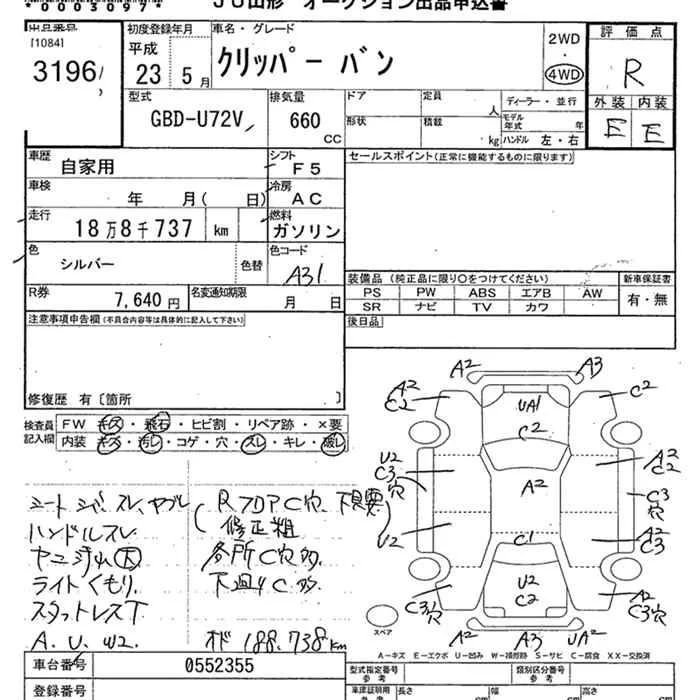 *0005097*
JU山形 オークション出品申込書
出品番号
[1084]
3196
初度登録年月
平成
23 5月
車名・グレード
クリッパー バン
2WD
・
4WD
評価点
R
外装 内装
E E
型式
GBD-U72V
排気量
660
CC
ドア
定員
人
形状
積載
kg
ディーラー・並行
モデル年式 年
ハンドル 左・右
車歴
自家用
シフト
F5
セールスポイント(正常に機能するものに限ります)
車検
年 月( 日)
冷房
AC
走行
18万8千737 km
燃料
ガソリン
色
シルバー
色替
色コード
A31
R券
7,640円
名変通知期限
月 日
装備品(純正品に限り○をつけてください)
PS PW ABS エアB AW
SR ナビ TV カワ
新車保証書
有・無
後日品
注意事項申告欄(不具合内容等は具体的に記入して下さい)
修復歴 有〔箇所 〕
検査員記入欄
FW キズ・飛石・ヒビ割・リペア跡・×要
内装 キズ・汚レ・コゲ・穴・スレ・キレ・破レ
シート シミ、スレ、ヤブレ
ハンドルスレ
ヤニ汚レ大
ライトくもり
スタットレス下
A.U.W2
Rフロアc穴、下見要
修正粗
各所C穴多
下廻りC多
オド 188,738km
A2 A3
A2 C2
UA1
C2
C2
U2 C3 穴
A2
A2 C2
C3 穴
U2
C1
A2 C3
U2 C2
C3穴
A2 C3穴
A2 A3 UA2
スペア
A-キズ E-エクボ U-凹み W-補修跡 S-サビ C-腐食 XX-交換済
車台番号
0552355
登録番号
型式指定番号
参考
類別区分番号
参考
車庫証明用
参考
長さ cm
幅 cm
高さ cm